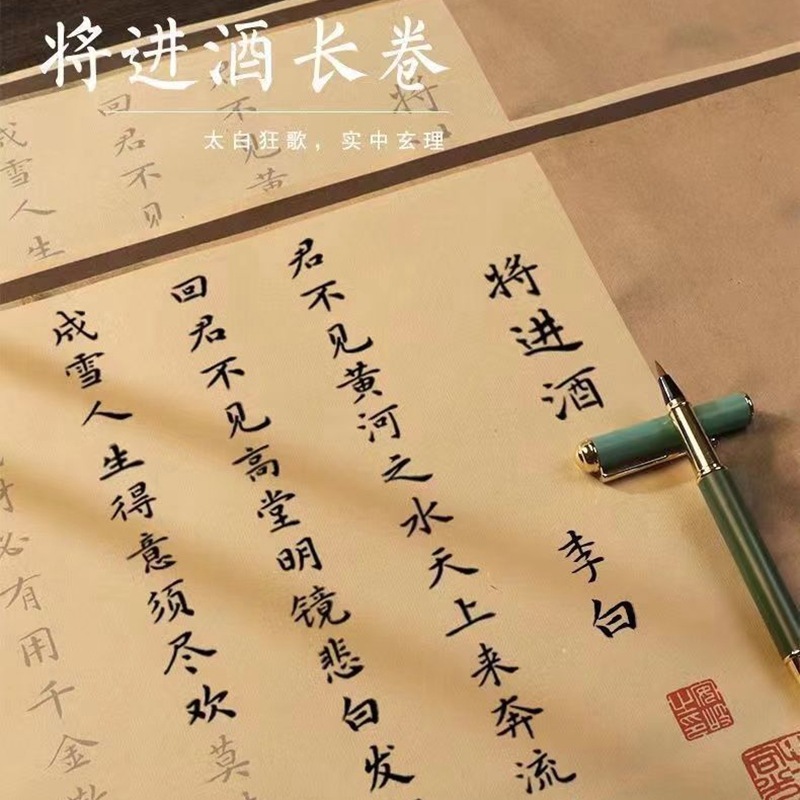 将进酒长卷
太白狂歌，实中玄理
将进酒
李白
君不见黄河之水天上来奔流
回君不见高堂明镜悲白发
成雪人生得意须尽欢莫
必有用千金散
将
君不见黄
回君不见
成雪人生